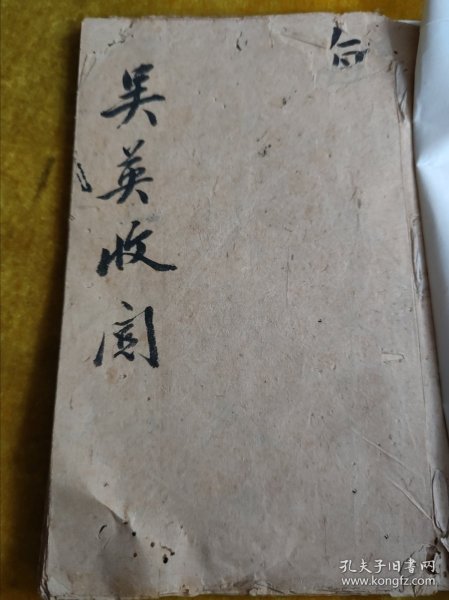 吴英收阅
孔夫子旧书网
www.kongfz.com